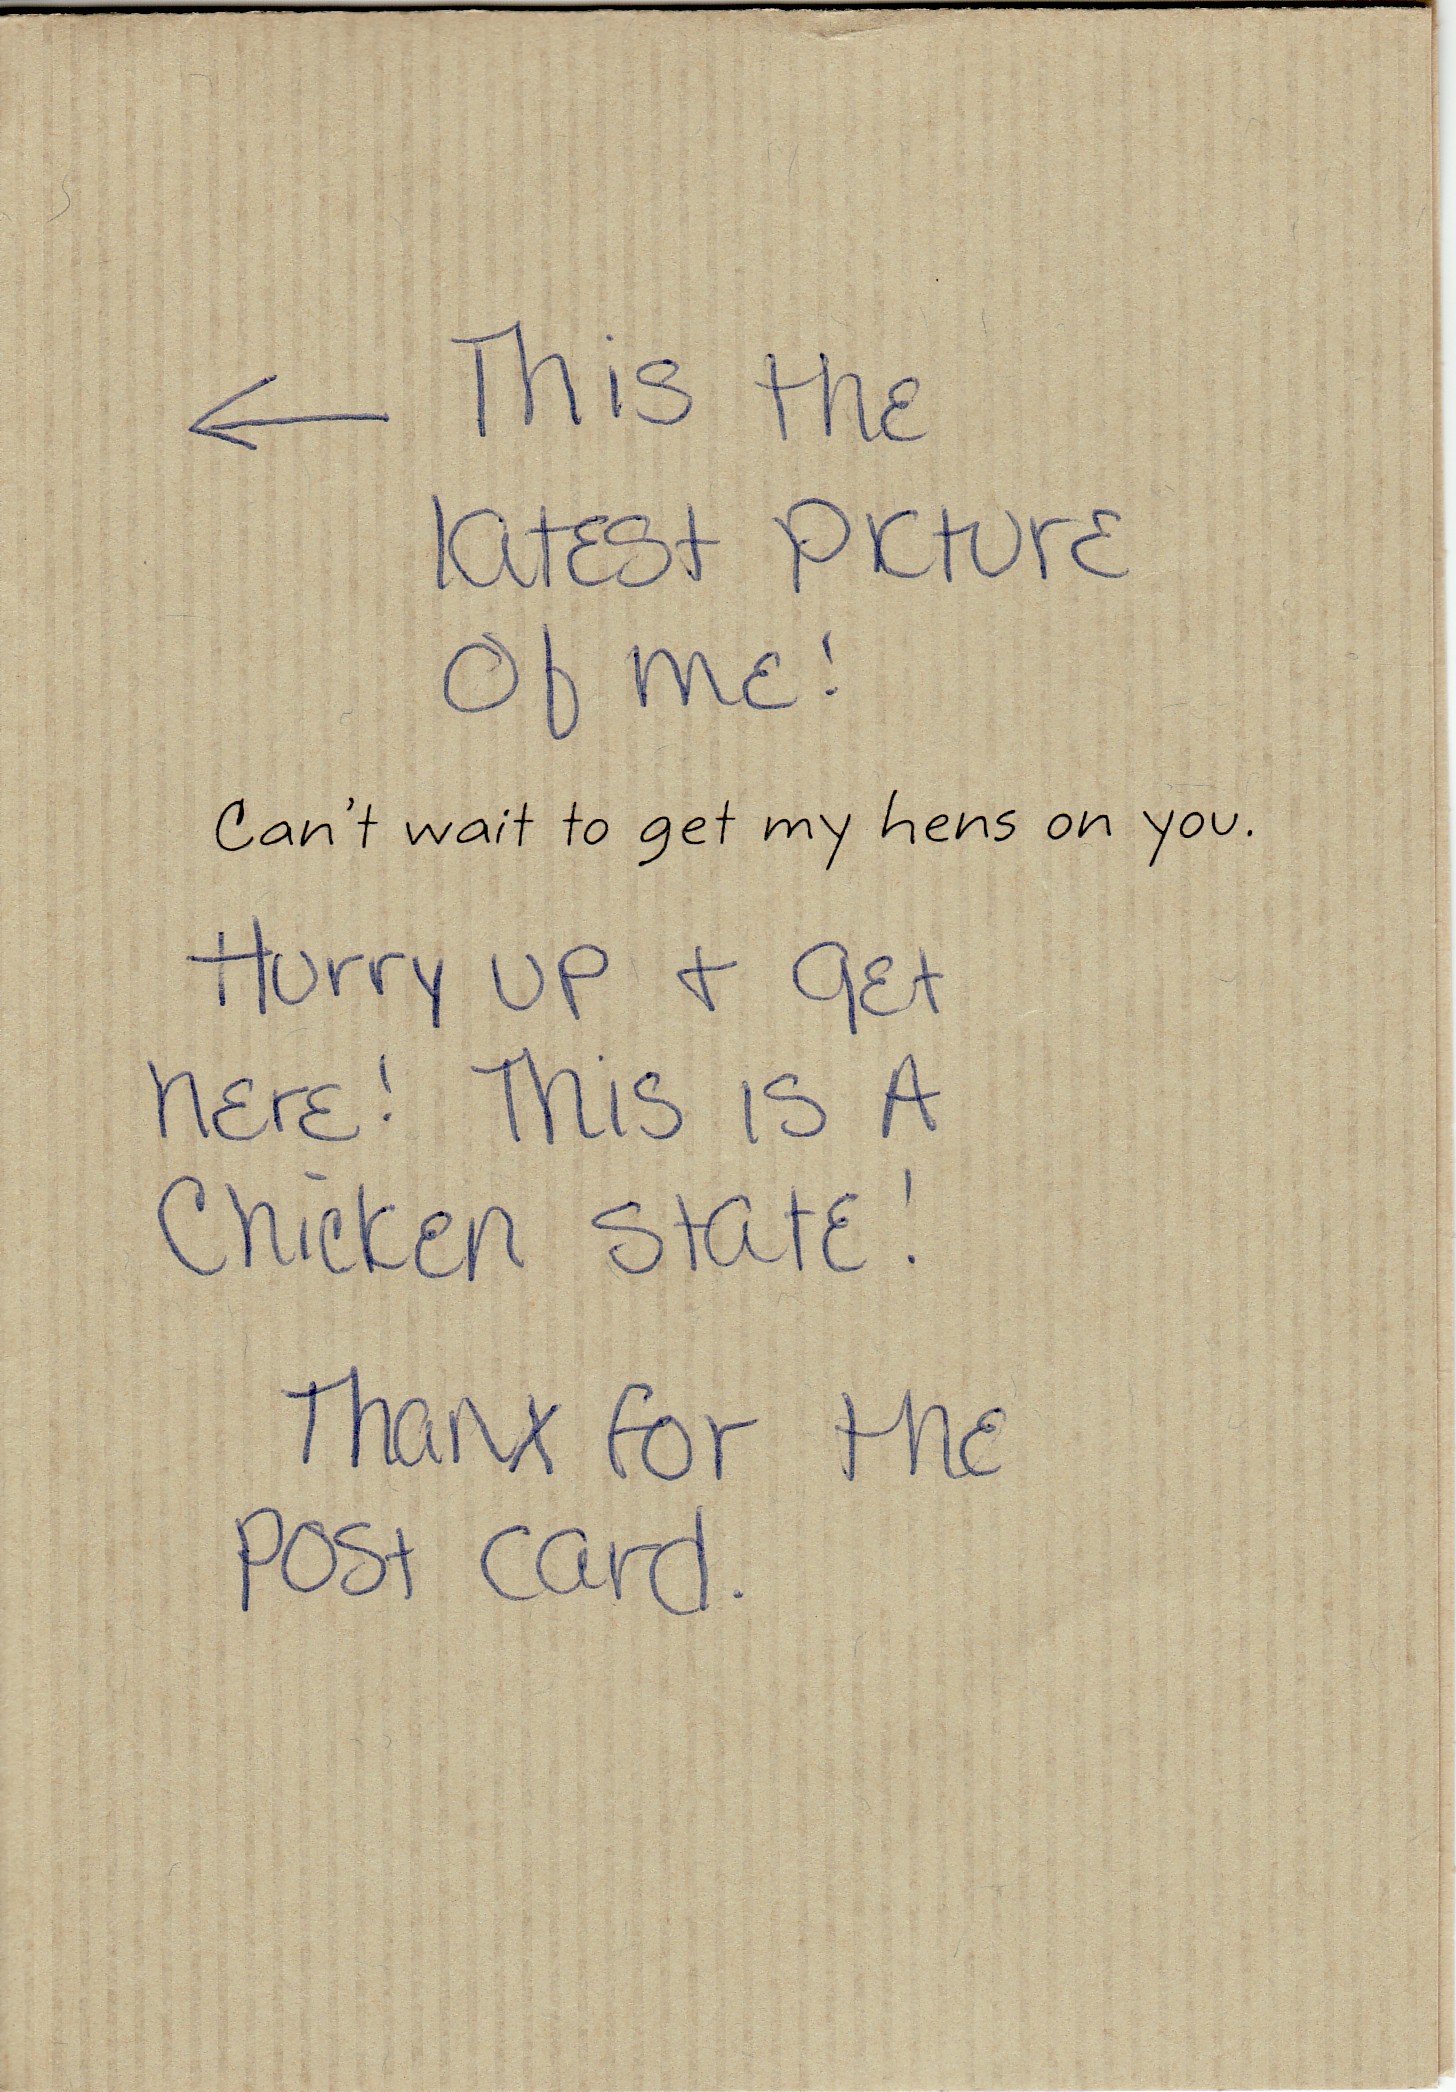 ← This the
latest picture
Of me!
Can't wait to get my hens on you.
Hurry up + get
here! This is A
Chicken state!
Thanx for the
post card.